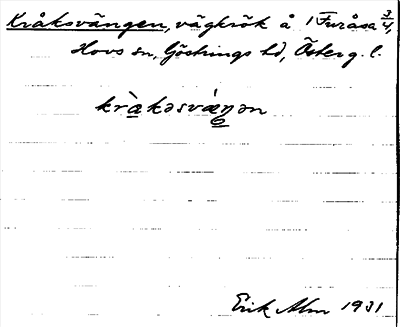 Kråksvängen, vägkrök å 1 Furåsa 3/4,
Hovs sn, Göstrings hd, Österg. l.
kràkəsváŋən
Erik Alm 1931